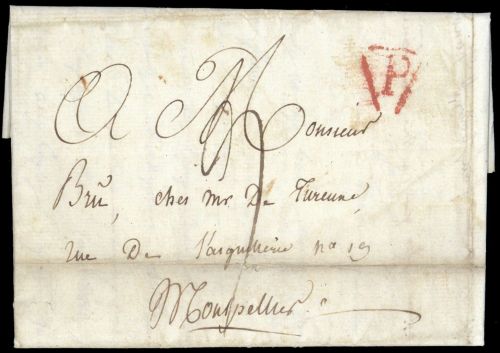 P
A Monsieur
Bru, chés Mr De Tureune,
rue De l'aiguillerie no 19
Montpellier